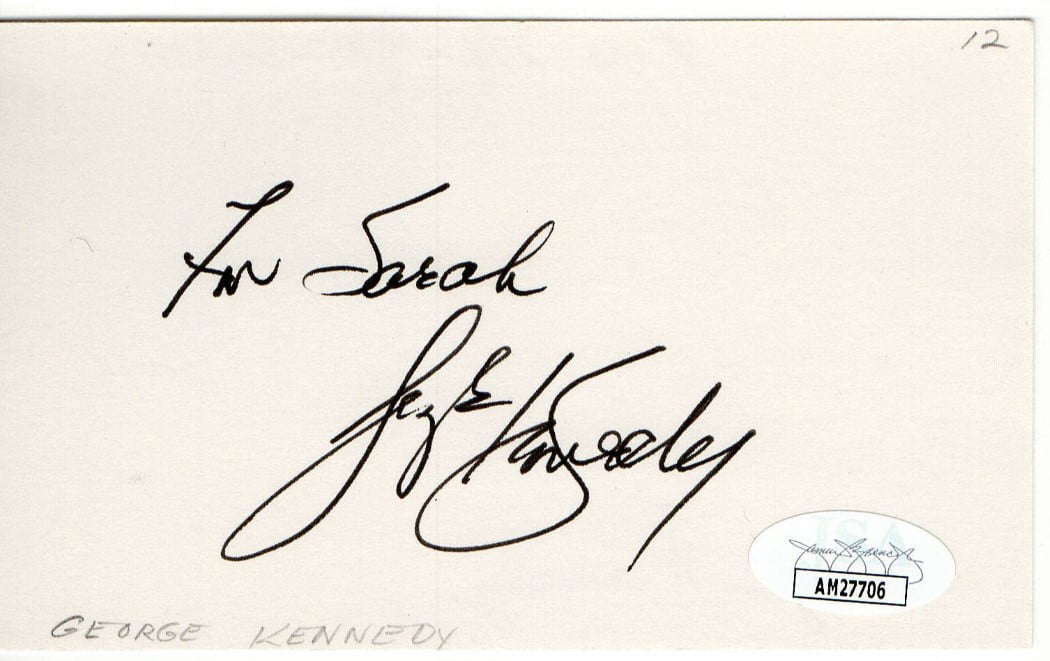 12
For Sarah
George Kennedy
JSA
AM27706
GEORGE KENNEDY